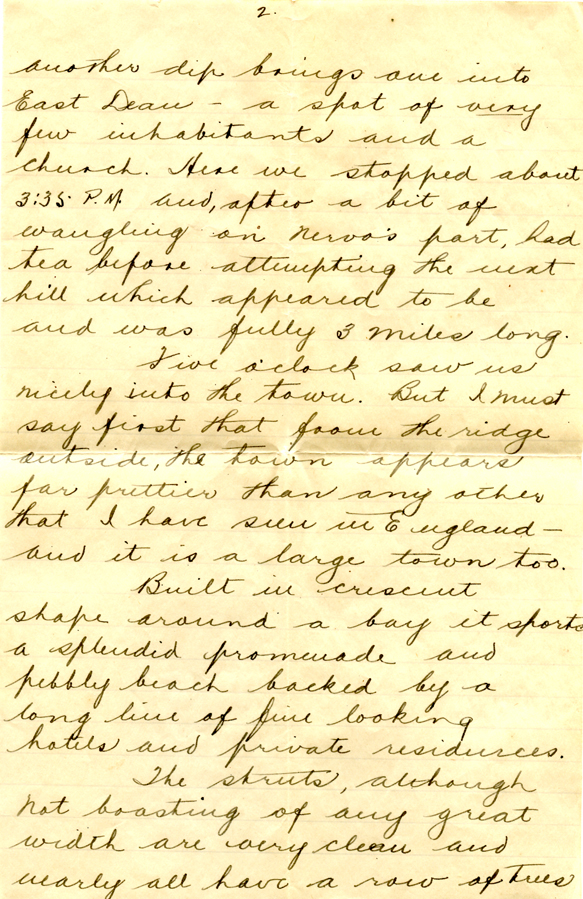 2.
another dip brings one into
East Dean - a spot of very
few inhabitants and a
church. Here we stopped about
3:35 P.M. and, after a bit of
wangling on Nervo's part, had
tea before attempting the next
hill which appeared to be
and was fully 3 miles long.
Five o'clock saw us
nicely into the town. But I must
say first that from the ridge
outside, the town appears
far prettier than any other
that I have seen in England -
and it is a large town too.
Built in crescent
shape around a bay it sports
a splendid promenade and
pebbly beach backed by a
long line of fine looking
hotels and private residences.
The streets, although
not boasting of any great
width are very clean and
nearly all have a row of trees